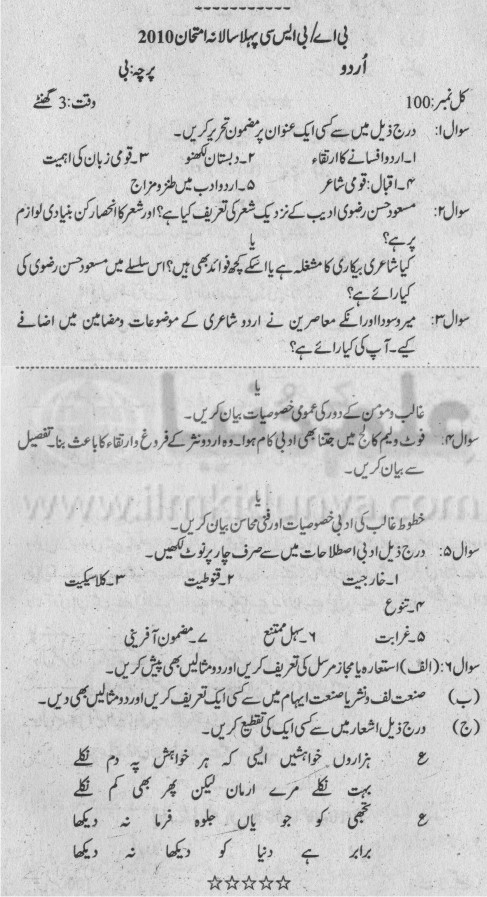 بی اے/بی ایس سی پہلا سالانہ امتحان 2010
اُردو پرچہ: بی
کل نمبر: 100 وقت: 3 گھنٹے
سوال۱: درج ذیل میں سے کسی ایک عنوان پر مضمون تحریر کریں۔
۱۔ اردو افسانے کا ارتقاء ۲۔ دبستان لکھنو ۳۔ قومی زبان کی اہمیت
۴۔ اقبال: قومی شاعر ۵۔ اردو ادب میں طنز و مزاح
سوال۲: مسعود حسن رضوی ادیب کے نزدیک شعر کی تعریف کیا ہے؟ اور شعر کا انحصار کن بنیادی لوازم
پر ہے؟
یا
کیا شاعری بیکاری کا مشغلہ ہے یا اسکے کچھ فوائد بھی ہیں؟ اس سلسلے میں مسعود حسن رضوی کی
کیا رائے ہے؟
سوال۳: میر و سودا اور انکے معاصرین نے اردو شاعری کے موضوعات و مضامین میں اضافے
کیے۔ آپ کی کیا رائے ہے؟
یا
غالب و مومن کے دور کی عمومی خصوصیات بیان کریں۔
سوال۴: فوٹ ولیم کالج میں جتنا بھی ادبی کام ہوا۔ وہ اردو نثر کے فروغ و ارتقاء کا باعث بنا۔ تفصیل
سے بیان کریں۔
یا
خطوط غالب کی ادبی خصوصیات اور فنی محاسن بیان کریں۔
سوال۵: درج ذیل ادبی اصطلاحات میں سے صرف چار پر نوٹ لکھیں۔
۱۔ خارجیت ۲۔ قنوطیت ۳۔ کلاسیکیت
۴۔ تنوع
۵۔ غرابت ۶۔ سہل ممتنع ۷۔ مضمون آفرینی
سوال۶: (الف) استعارہ یا مجاز مرسل کی تعریف کریں اور دو مثالیں بھی پیش کریں۔
(ب) صنعت لف و نشر یا صنعت ایہام میں سے کسی ایک تعریف کریں اور دو مثالیں بھی دیں۔
(ج) درج ذیل اشعار میں سے کسی ایک کی تقطیع کریں۔
ع ہزاروں خواہشیں ایسی کہ ہر خواہش پہ دم نکلے
بہت نکلے مرے ارمان لیکن پھر بھی کم نکلے
ع تجھی کو جو یاں جلوہ فرما نہ دیکھا
برابر ہے دنیا کو دیکھا نہ دیکھا
☆☆☆☆☆